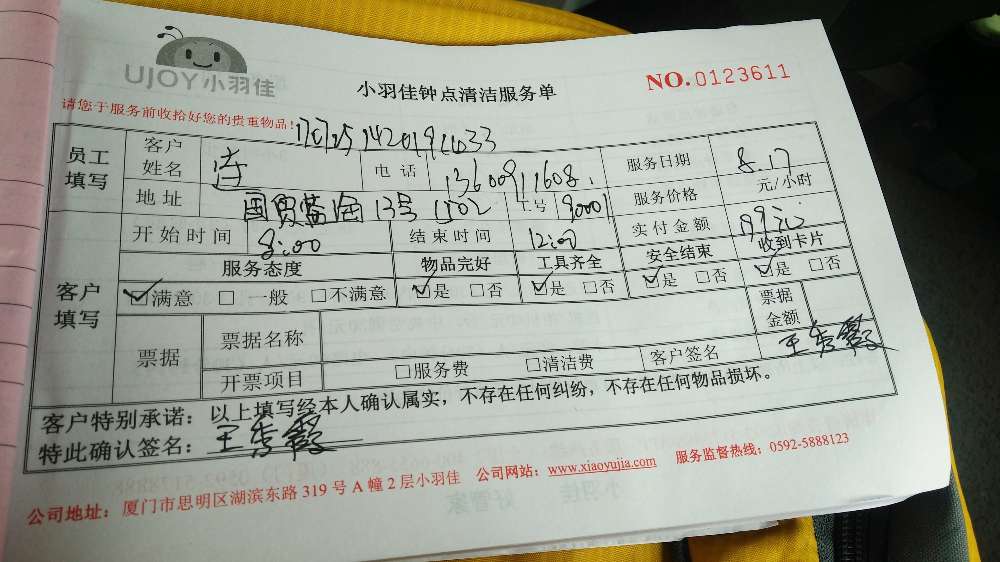 UJOY小羽佳
小羽佳钟点清洁服务单
NO.0123611
请您于服务前收拾好您的贵重物品!
员工填写
客户姓名 连 电话 13600911608 服务日期 8.17
地址 国贸蓝海13号1502 工号 90001 服务价格 元/小时
开始时间 8:00 结束时间 12:00 实付金额
客户填写
服务态度 物品完好 工具齐全 安全结束 收到卡片
☑满意 □一般 □不满意 ☑是 □否 ☑是 □否 ☑是 □否 ☑是 □否
票据 票据名称 票据金额
开票项目 □服务费 □清洁费 客户签名 王秀霞
客户特别承诺：以上填写经本人确认属实，不存在任何纠纷，不存在任何物品损坏。
特此确认签名：王秀霞
公司地址：厦门市思明区湖滨东路319号A幢2层小羽佳 公司网站：www.xiaoyujia.com 服务监督热线：0592-5888123